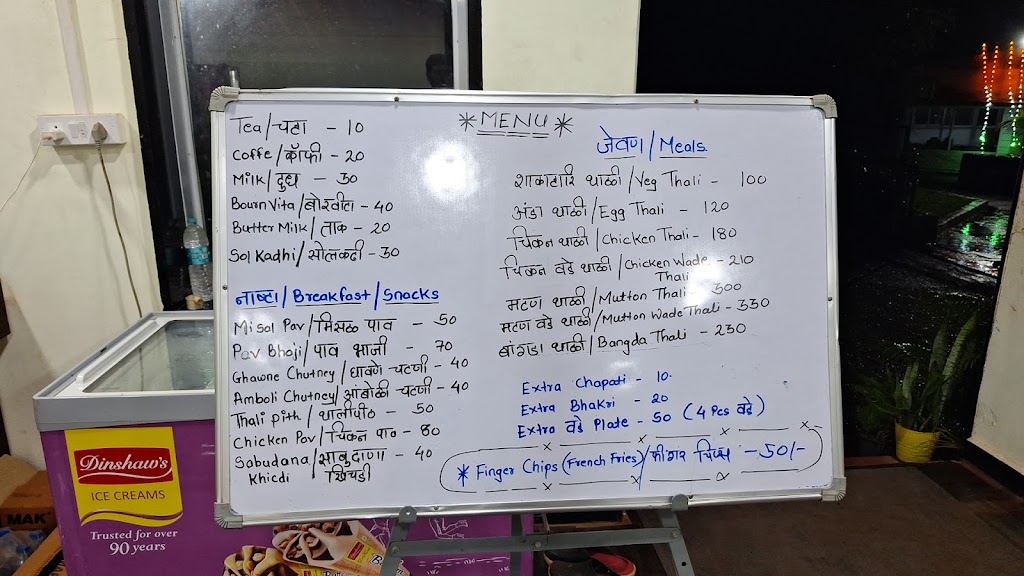 *MENU*
Tea/चहा - 10
Coffe/कॉफी - 20
Milk/दुध - 30
BournVita/बोरवीटा - 40
Butter Milk/ताक - 20
Sol Kadhi/सोलकढी - 30
नाष्टा/Breakfast/Snacks
Misal Pav/मिसळ पाव - 50
Pav Bhaji/पाव भाजी - 70
Ghawne Chutney/घावणे चटणी - 40
Amboli Chutney/आंबोळी चटणी - 40
Thali pith/थालीपीठ - 50
Chicken Pav/चिकन पाव - 80
Sabudana/साबुदाणा - 40
Khicdi खिचडी
जेवण/Meals
शाकाहारि थाळी/Veg Thali - 100
अंडा थाळी/Egg Thali - 120
चिकन थाळी/Chicken Thali - 180
चिकन वडे थाळी/Chicken Wade - 210
Thali
मटण थाळी/Mutton Thali - 300
मटण वडे थाळी/Mutton Wade Thali - 330
बांगडा थाळी/Bangda Thali - 230
Extra Chapati - 10
Extra Bhakri - 20
Extra वडे Plate - 50 (4 Pcs वडे)
* Finger Chips (French Fries)/फींगर चिप्स - 50/-
Dinshaw's
ICE CREAMS
Trusted for over
90 years
MAK